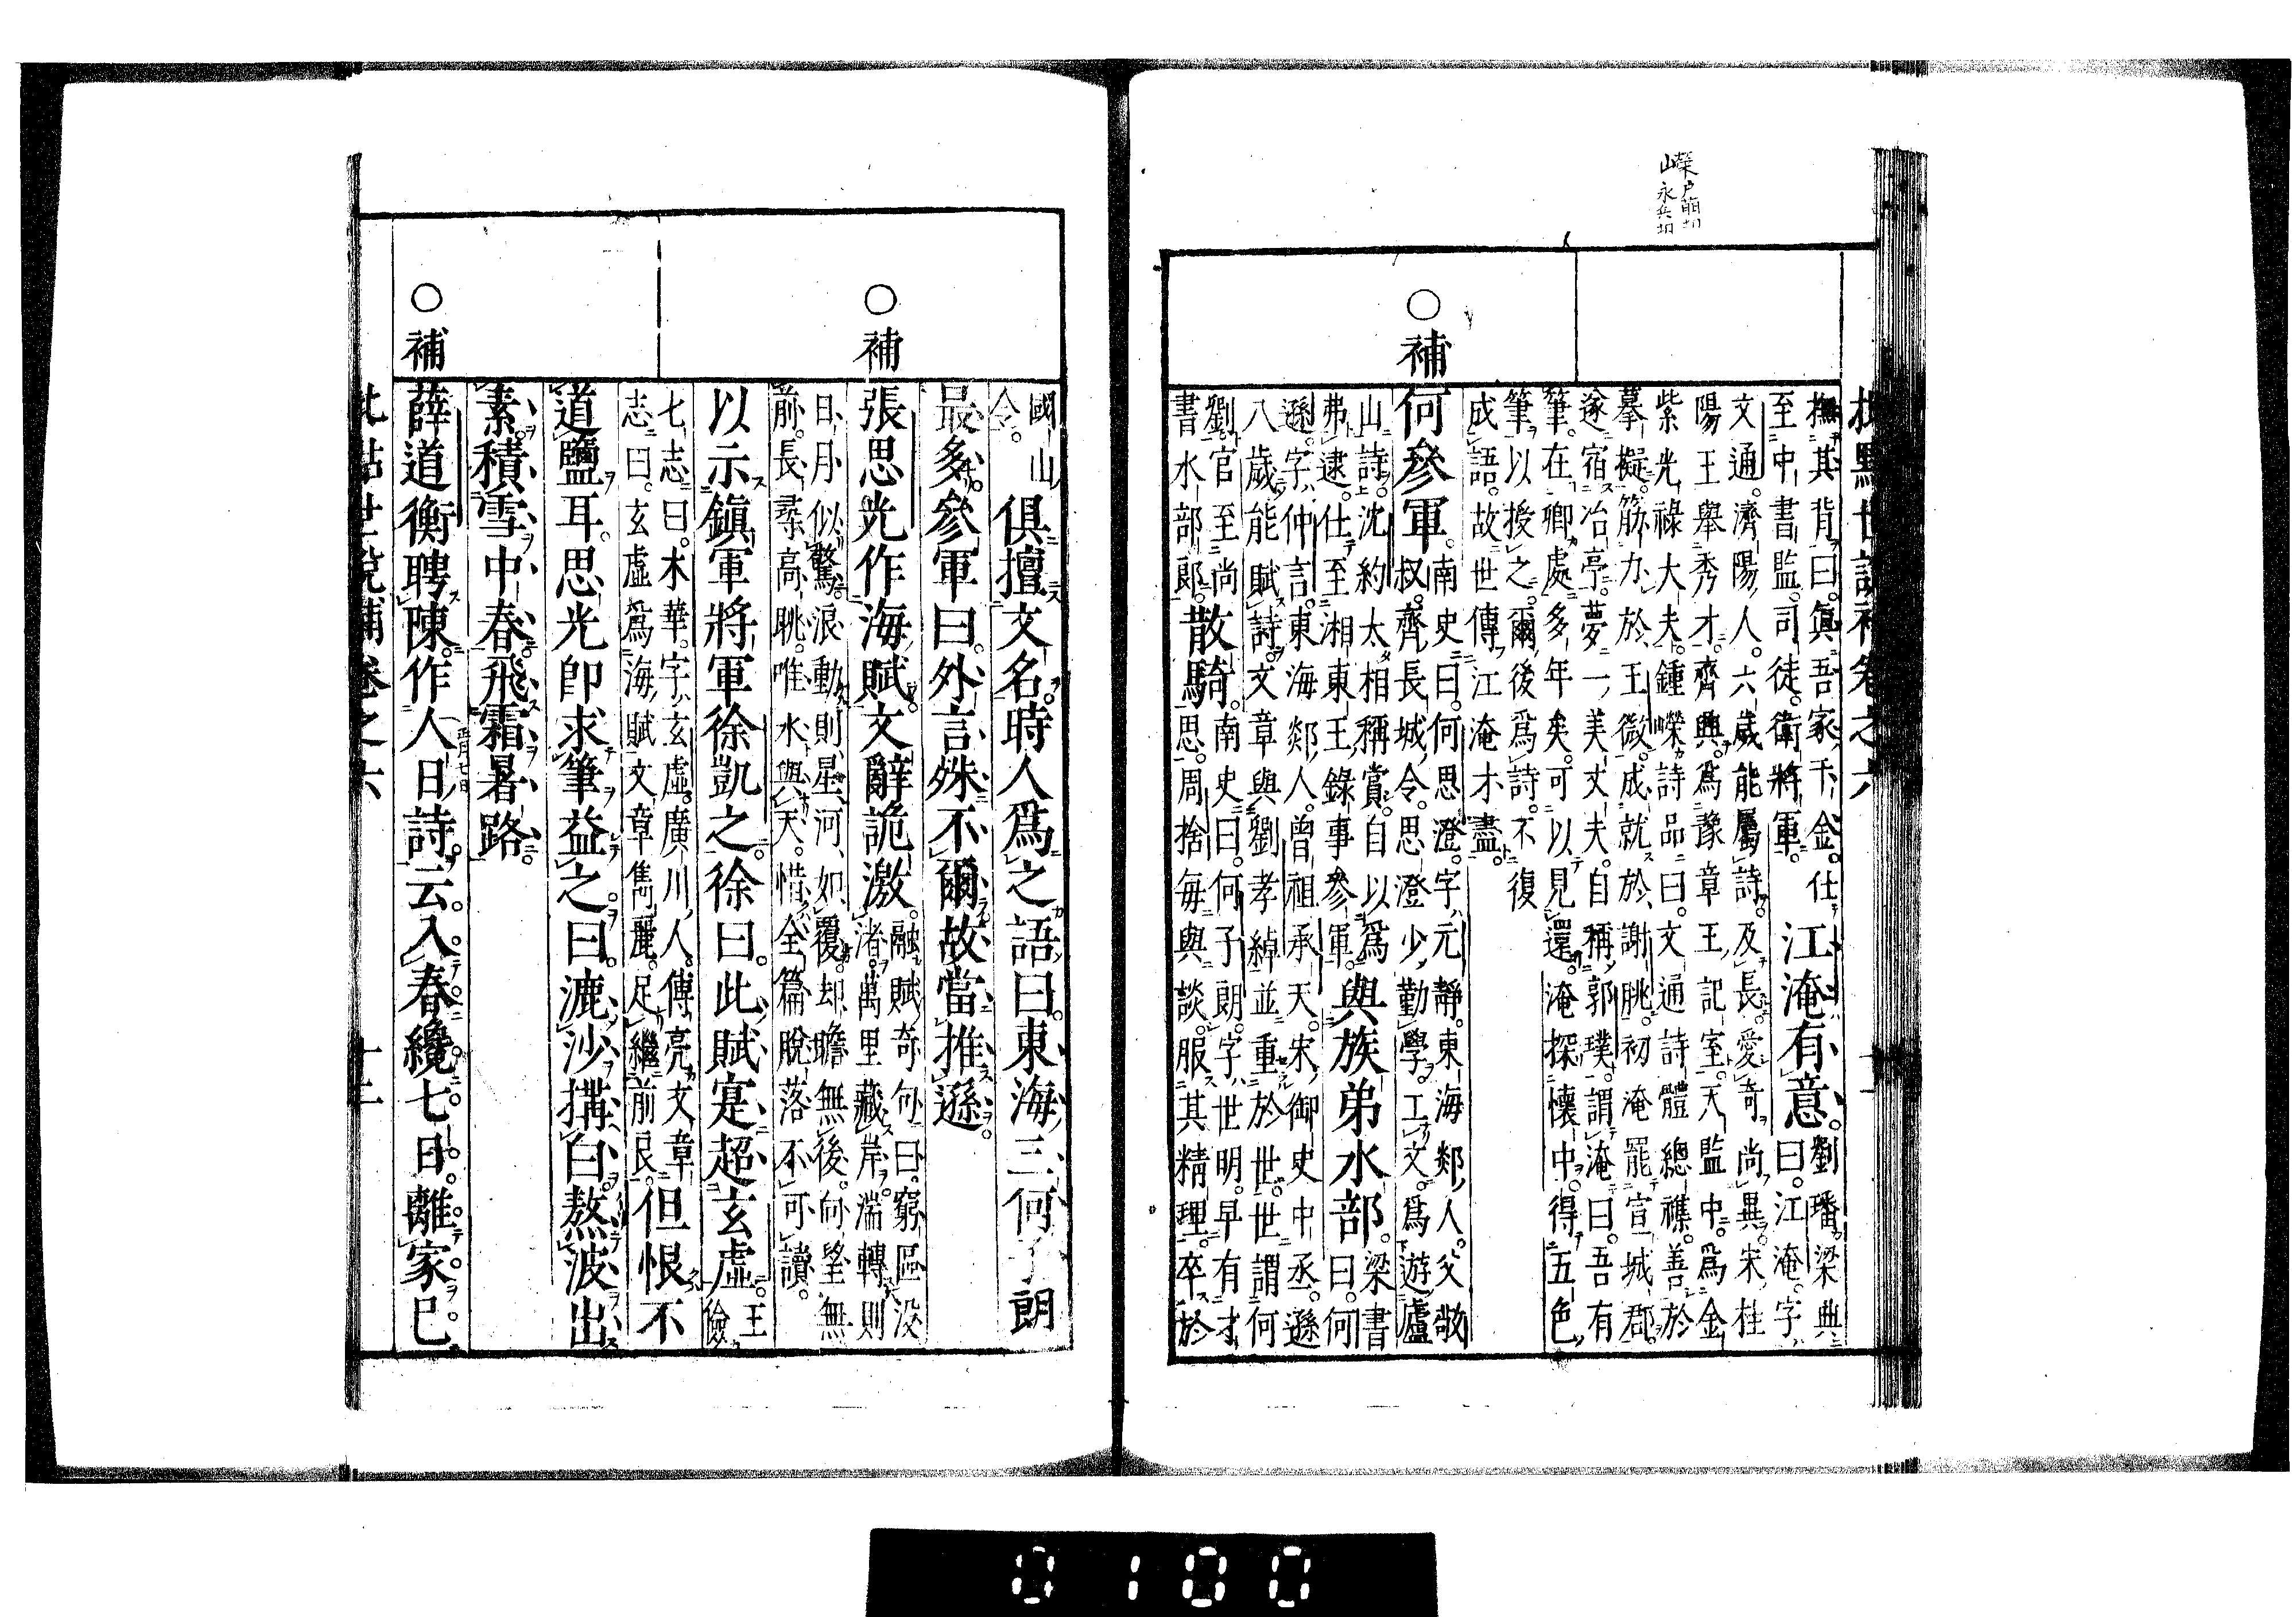 批點世說補卷之六
撫其背曰。眞吾家千金。仕
至中書監。司徒。衛將軍。
江淹有意。
劉璠梁典
曰。江淹。字
文通。濟陽人。六歲能屬詩。及長。愛奇尚異。宋桂
陽王舉秀才。齊興。爲豫章王記室。天監中。爲金
紫光祿大夫。鍾嶸詩品曰。文通詩體總襍。善於
摹擬。筋力於王微。成就於謝朓。初淹罷宣城郡。
遂宿冶亭。夢一美丈夫。自稱郭璞。謂淹曰。吾有
筆。在卿處多年矣。可以見還。淹探懷中。得五色
筆以授之。爾後爲詩。不復
成語。故世傳江淹才盡。
○補
何參軍。
南史曰。何思澄。字元靜。東海郯人。父敬
叔。齊長城令。思澄少勤學。工文。爲遊廬
山詩。沈約太相稱賞。自以爲
弗逮。仕至湘東王錄事參軍。
與族弟水部。
梁書
曰。何
遜。字仲言。東海郯人。曾祖承天。宋御史中丞。遜
八歲能賦詩。文章與劉孝綽並重於世。世謂何
劉。官至尚
書水部郎。
散騎。
南史曰。何子朗。字世明。早有才
思。周捨每與談。服其精理。卒於
國山
令。
俱擅文名。時人爲之語曰。東海三何子朗
最多。參軍曰。外言殊不爾。故當推遜。
○補
張思光作海賦。文辭詭激。
融賦奇句曰。窮區没
渚。萬里藏岸。湍轉則
日月似驚。浪動則星河如覆。却瞻無後。向望無
前。長尋高眺。唯水與天。惜全篇脫落不可讀。
以示鎭軍將軍徐凱之。徐曰。此賦寔超玄虛。
王
儉
七志曰。木華。字玄虛。廣川人。傅亮文章
志曰。玄虛爲海賦文章雋麗。足繼前良。
但恨不
道鹽耳。思光卽求筆益之曰。漉沙搆白。熬波出
素。積雪中春。飛霜暑路。
○補
薛道衡聘陳。作人日詩云。入春纔七日。離家已
正月七日
批點世說補卷之六
十二
嶸 戶萌切
山 永兵切
0100